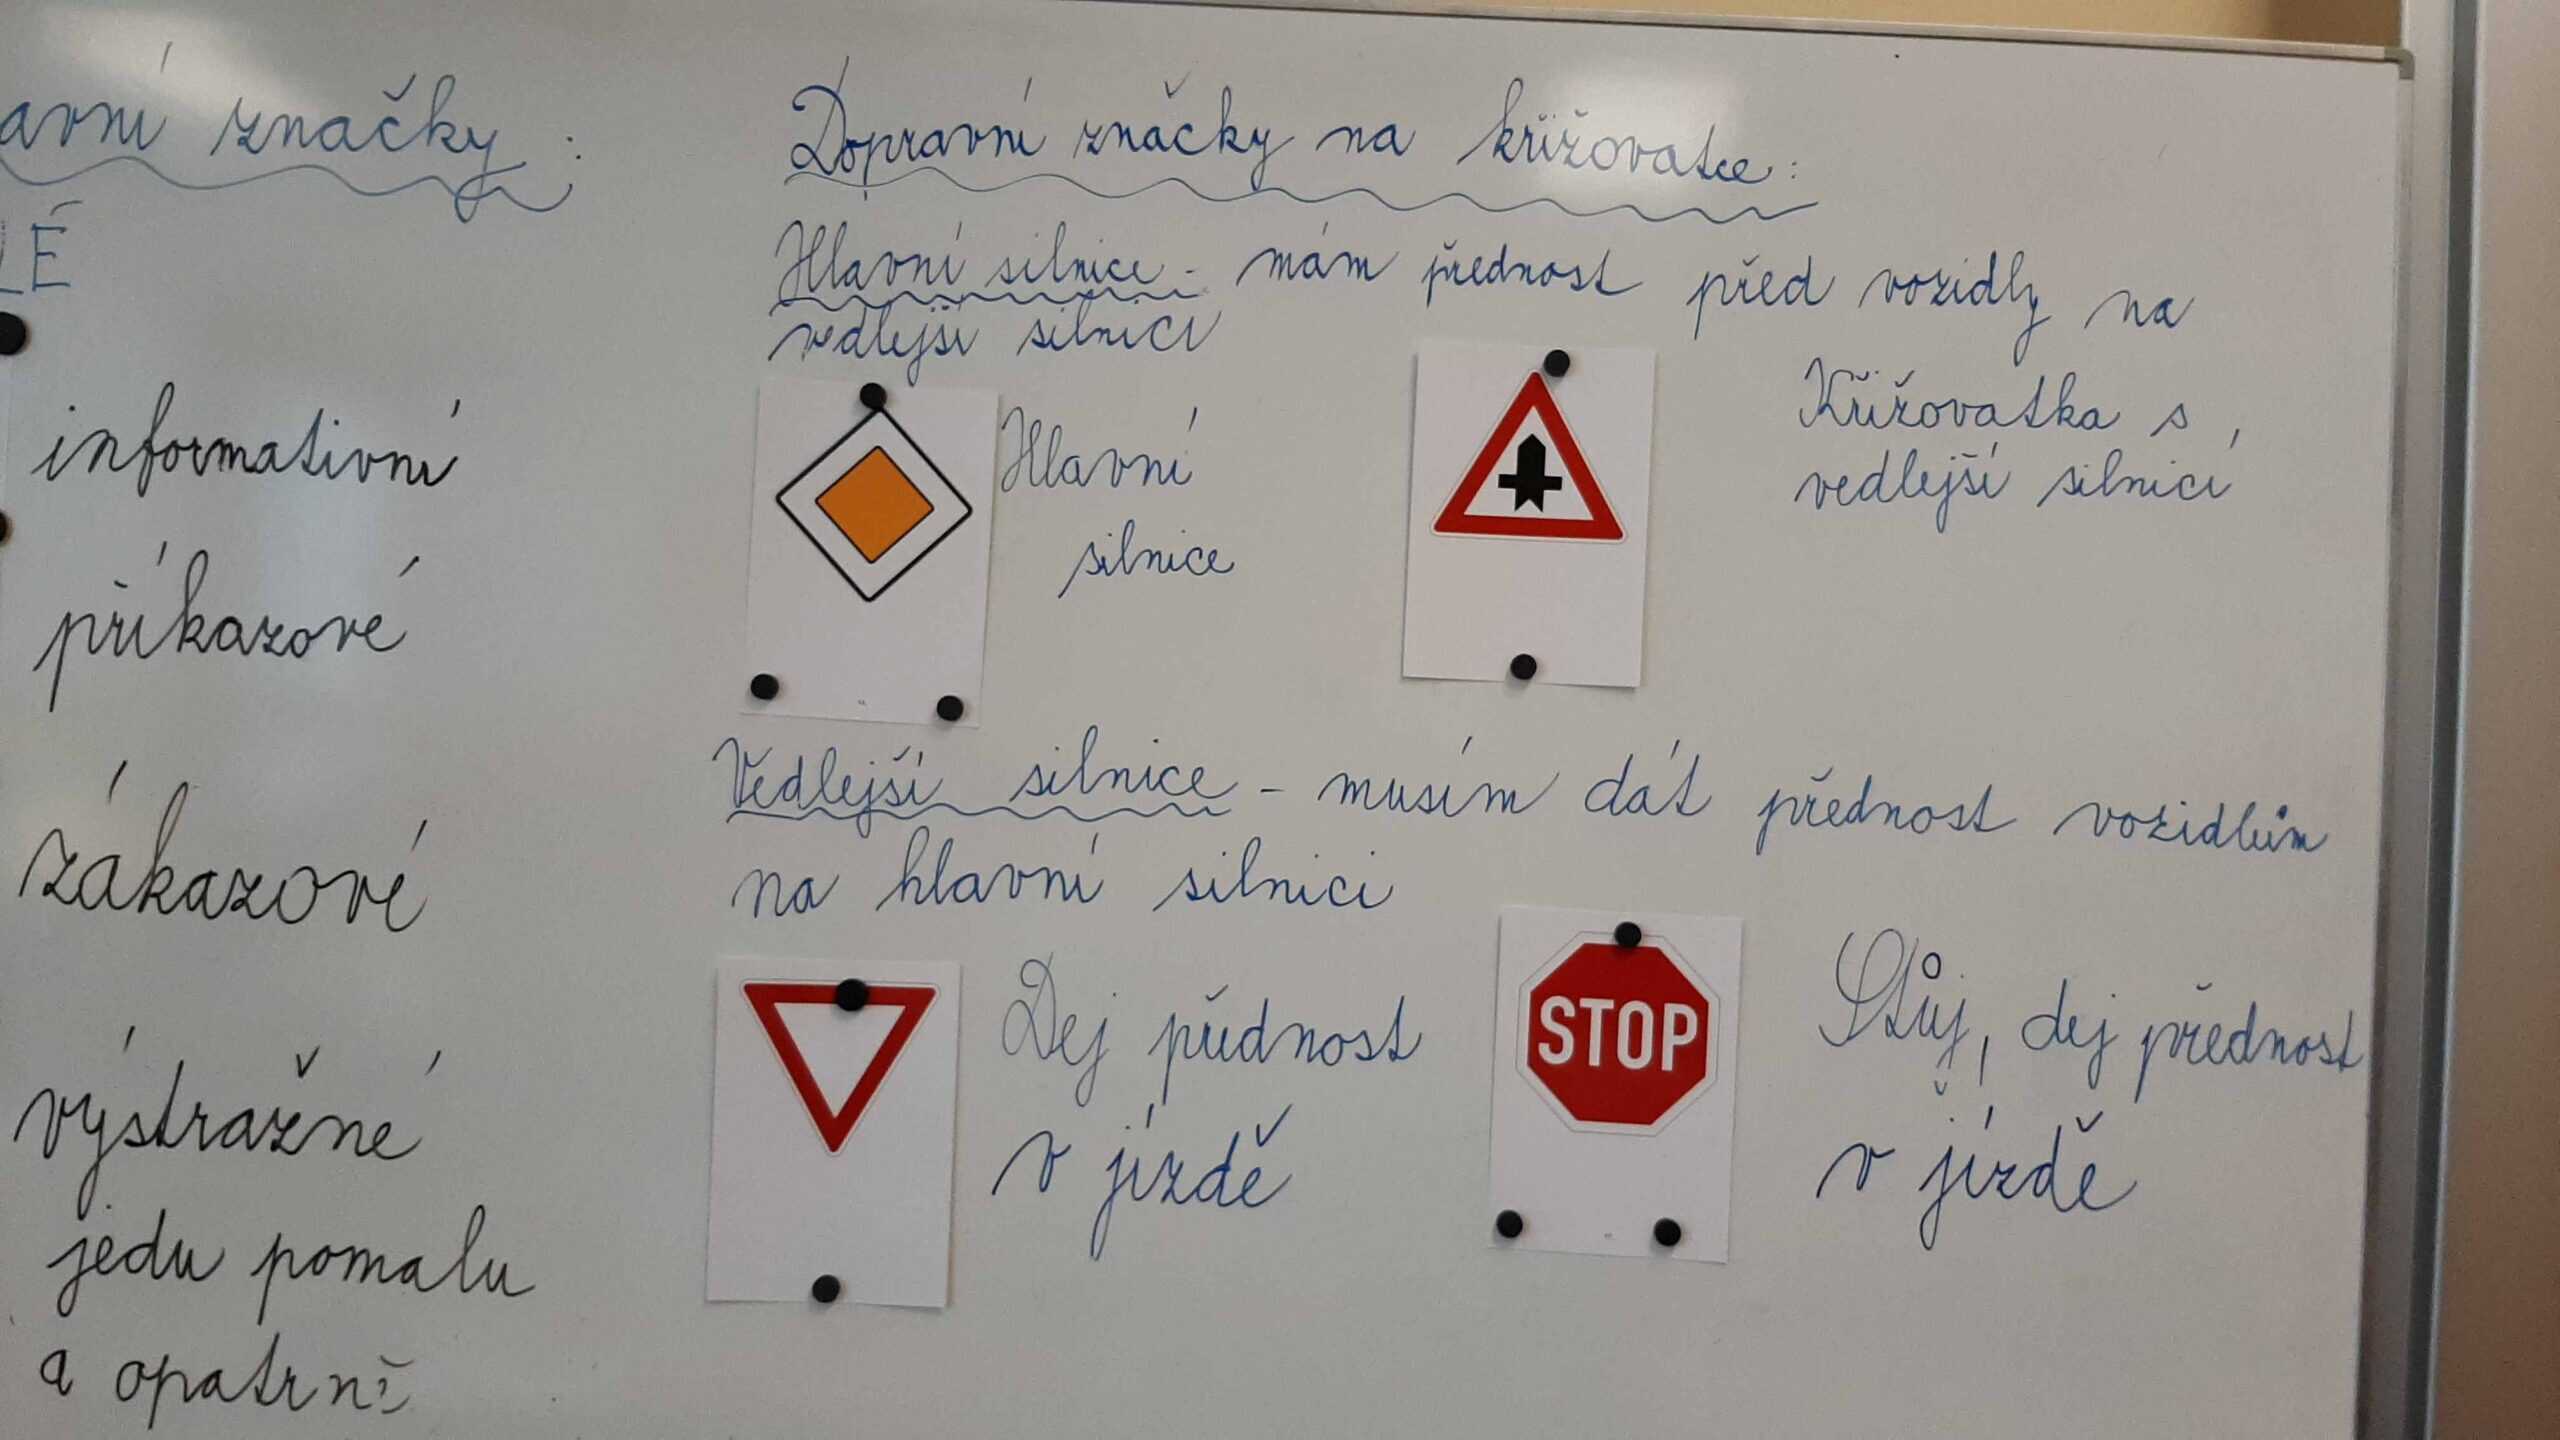 avní značky:
LÉ
informativní
příkazové
zákazové
výstražné
jedu pomalu
a opatrně
Dopravní značky na křižovatce:
Hlavní silnice - mám přednost před vozidly na
vedlejší silnici
Hlavní
silnice
Křižovatka s
vedlejší silnicí
Vedlejší silnice - musím dát přednost vozidlům
na hlavní silnici
Dej přednost
v jízdě
STOP
Stůj, dej přednost
v jízdě